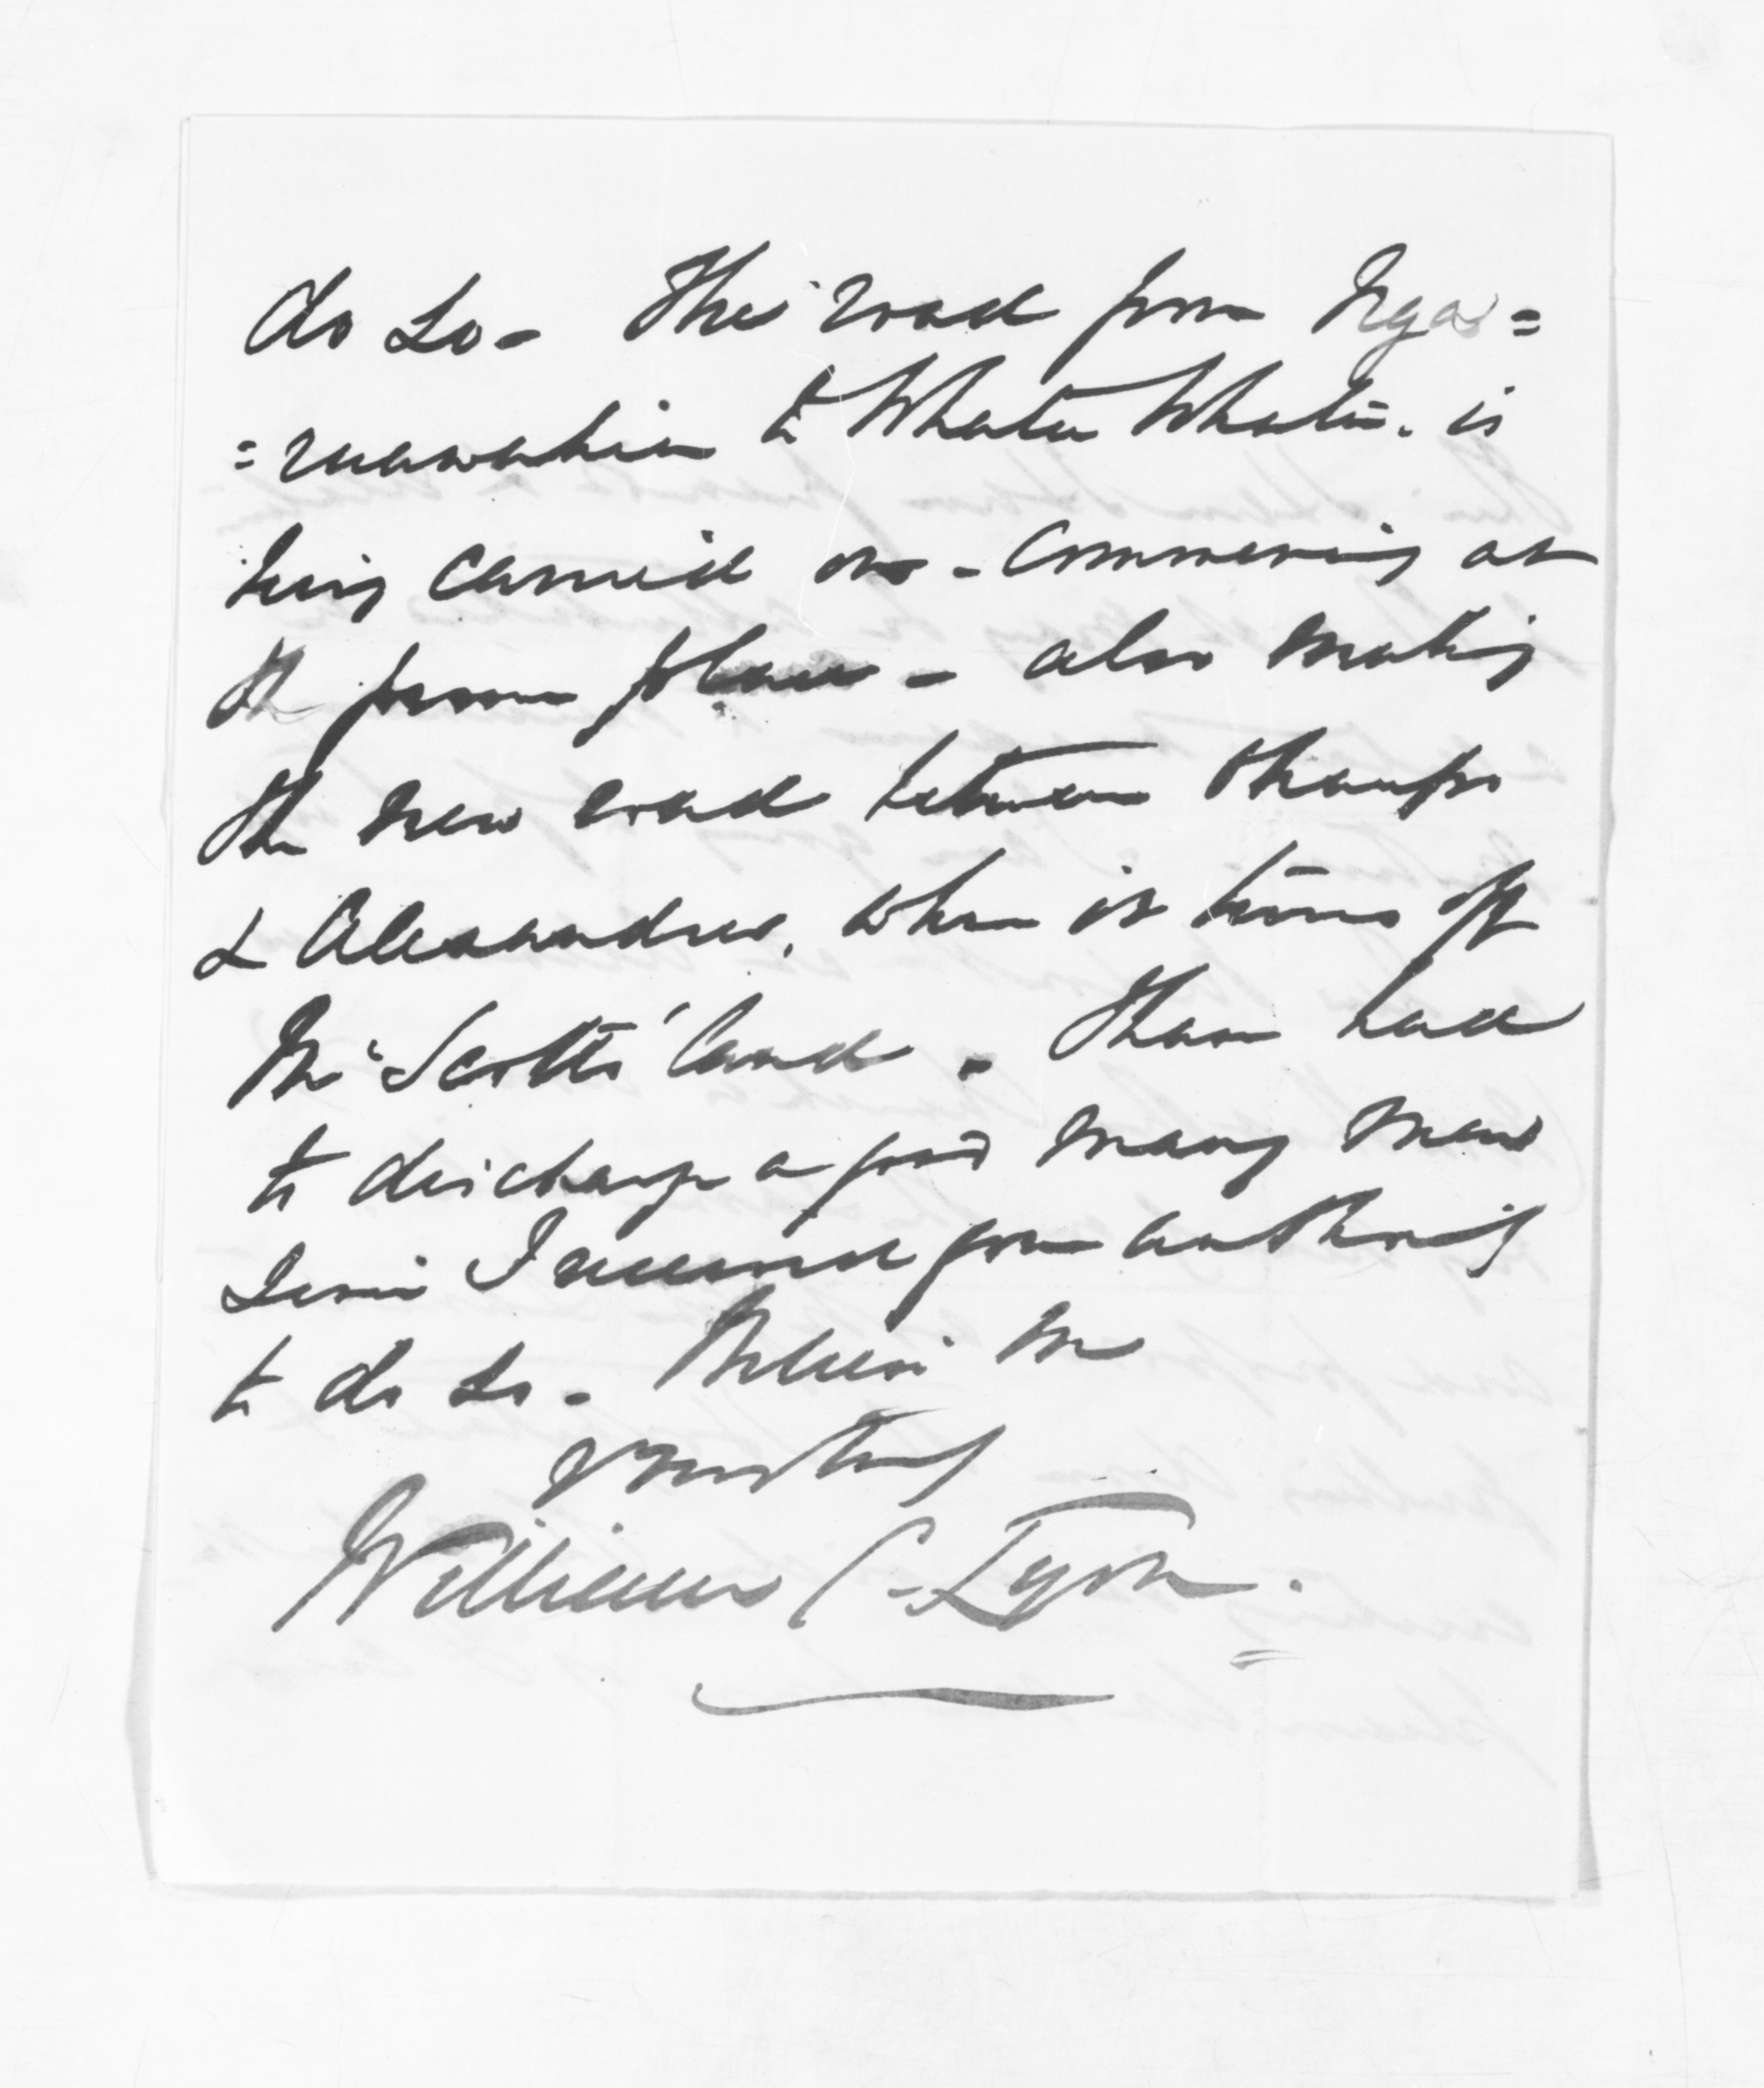 do so - The road from Nga=
=ruawahia to Whata Whata. is
being carried on - Commencing at
the former place - also making
the new road between Ohaupo
& Alexandra, when it turns off
Mr Scotts' land . I have had
to discharge a good many men
since I received your authority
to do so - Believe me
Yours truly
William C. Lyon.